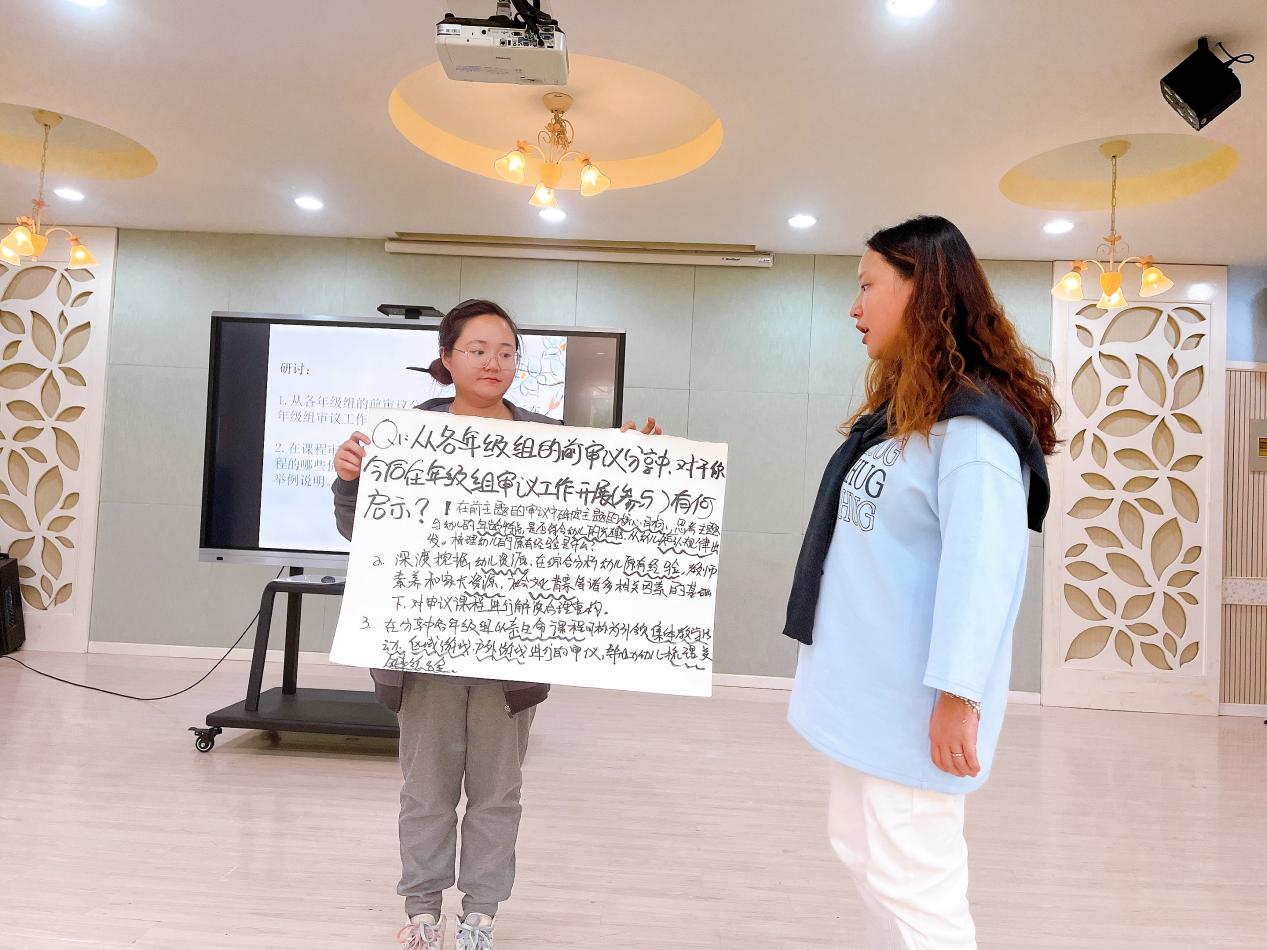 研讨：
1. 从各年级组的前审议分
年级组审议工作
2. 在课程审
程的哪些价
举例说明。
Q1：从各年级组的前审议分享中，对于你
今后在年级组审议工作开展（参与）有何
启示？
1 在前主题的审议中确定主题的核心目标，思考主题
与幼儿的年龄性能，是否符合幼儿的兴趣，从幼儿的认知规律出
发。梳理幼儿的原有经验是什么？
2. 深渡挖掘，幼儿资源，在综合分析幼儿原有经验，教师
素养和家长资源、社会文化背景等诸多相关因素的基础
下，对审议课程进行解读合理重构。
3. 在分享中各年级组从前生命课程
动、区域游戏、户外游戏进行的审议，帮助幼儿梳理关
键经验。
HUG
HUG
HUG